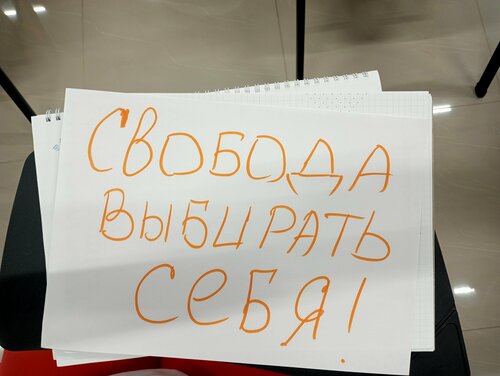 СВОБОДА
ВЫБИРАТЬ
СЕБЯ!